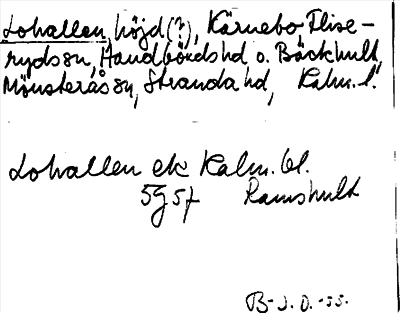 Lohallen, höjd (?), Kärnebo Flise-
ryds sn, Handbörds hd o. Bäckhult,
Mönsterås sn, Stranda hd, Kalm. l.
Lohallen ek Kalm. bl.
5g5f Ramshult
B-J.O.-55.